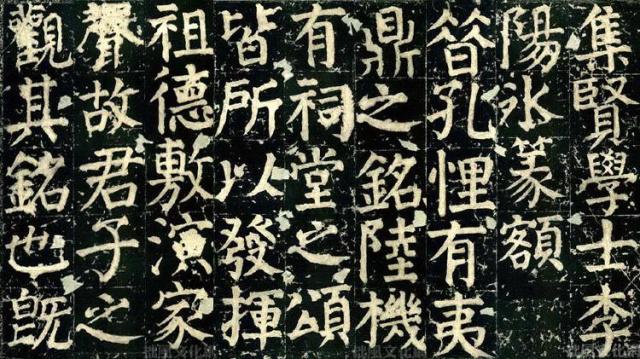 集賢學士李
陽冰篆額
昝孔悝有夷
鼎之銘陸機
有祠堂之頌
皆所以發揮
祖德敷演家
聲故君子之
觀其銘也既